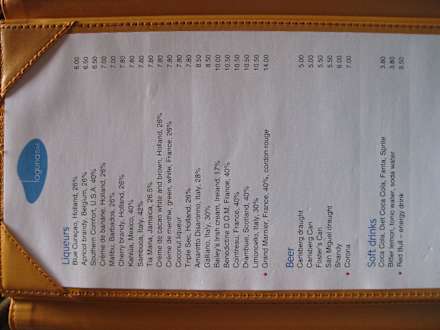 lagunabar
Liqueurs
Blue Curaçao, Holland, 26% 6.00
Apricot brandy, Belgium, 26% 6.50
Southern Comfort, U.S.A. 40% 6.50
Crème de banane, Holland, 26% 7.00
Malibu, Barbados, 26% 7.00
Cherry brandy, Holland, 26% 7.80
Kahlua, Mexico, 40% 7.80
Sambuca, Italy, 42% 7.80
Tia Maria, Jamaica, 26.5% 7.80
Crème de cacao white and brown, Holland, 26% 7.80
Crème de menthe, green, white, France, 26% 7.80
Coconut liqueur 7.80
Triple Sec, Holland, 26% 7.80
Amaretto Disaronno, Italy, 28% 8.50
Galliano, Italy, 30% 8.50
Bailey's Irish cream, Ireland, 17% 10.00
Benedictine D.O.M. France, 40% 10.50
Cointreau, France, 40% 10.50
Drambuie, Scotland, 40% 10.50
Limoncello, Italy, 30% 10.50
• Grand Marnier, France, 40%, cordon rouge 14.00
Beer
Carlsberg draught 5.00
Carlsberg Can 5.00
Foster's Can 5.50
San Miguel draught 5.50
Shandy 6.00
• Corona 7.00
Soft drinks
Coca Cola, Diet Coca Cola, Fanta, Sprite 3.80
Bitter lemon, tonic water, soda water 3.80
• Red Bull - energy drink 8.50